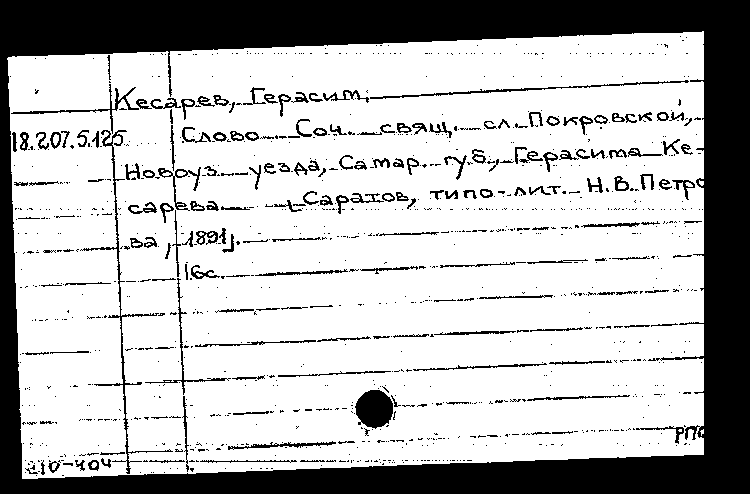 Кесарев, Герасим.
18.207.5.125 Слово. Соч. свящ. сл. Покровской,
Новоуз. уезда, Самар. губ., Герасима Ке-
сарева. [Саратов, типо-лит. Н.В. Петро
ва, 1891].
16с.
РПС
210-404